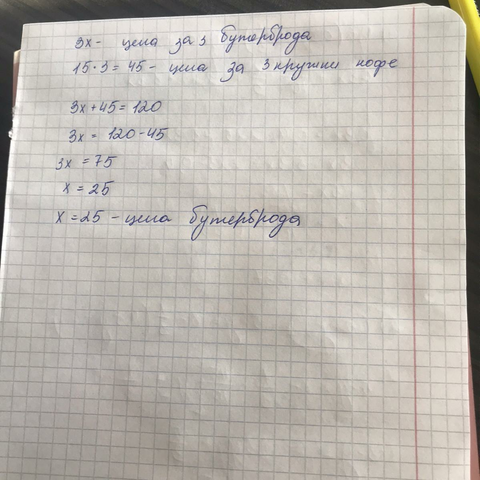 3х - цена за 3 бутерброда
15·3=45 - цена за 3 кружки кофе
3х+45=120
3х = 120-45
3х = 75
х = 25
х = 25 - цена бутерброда